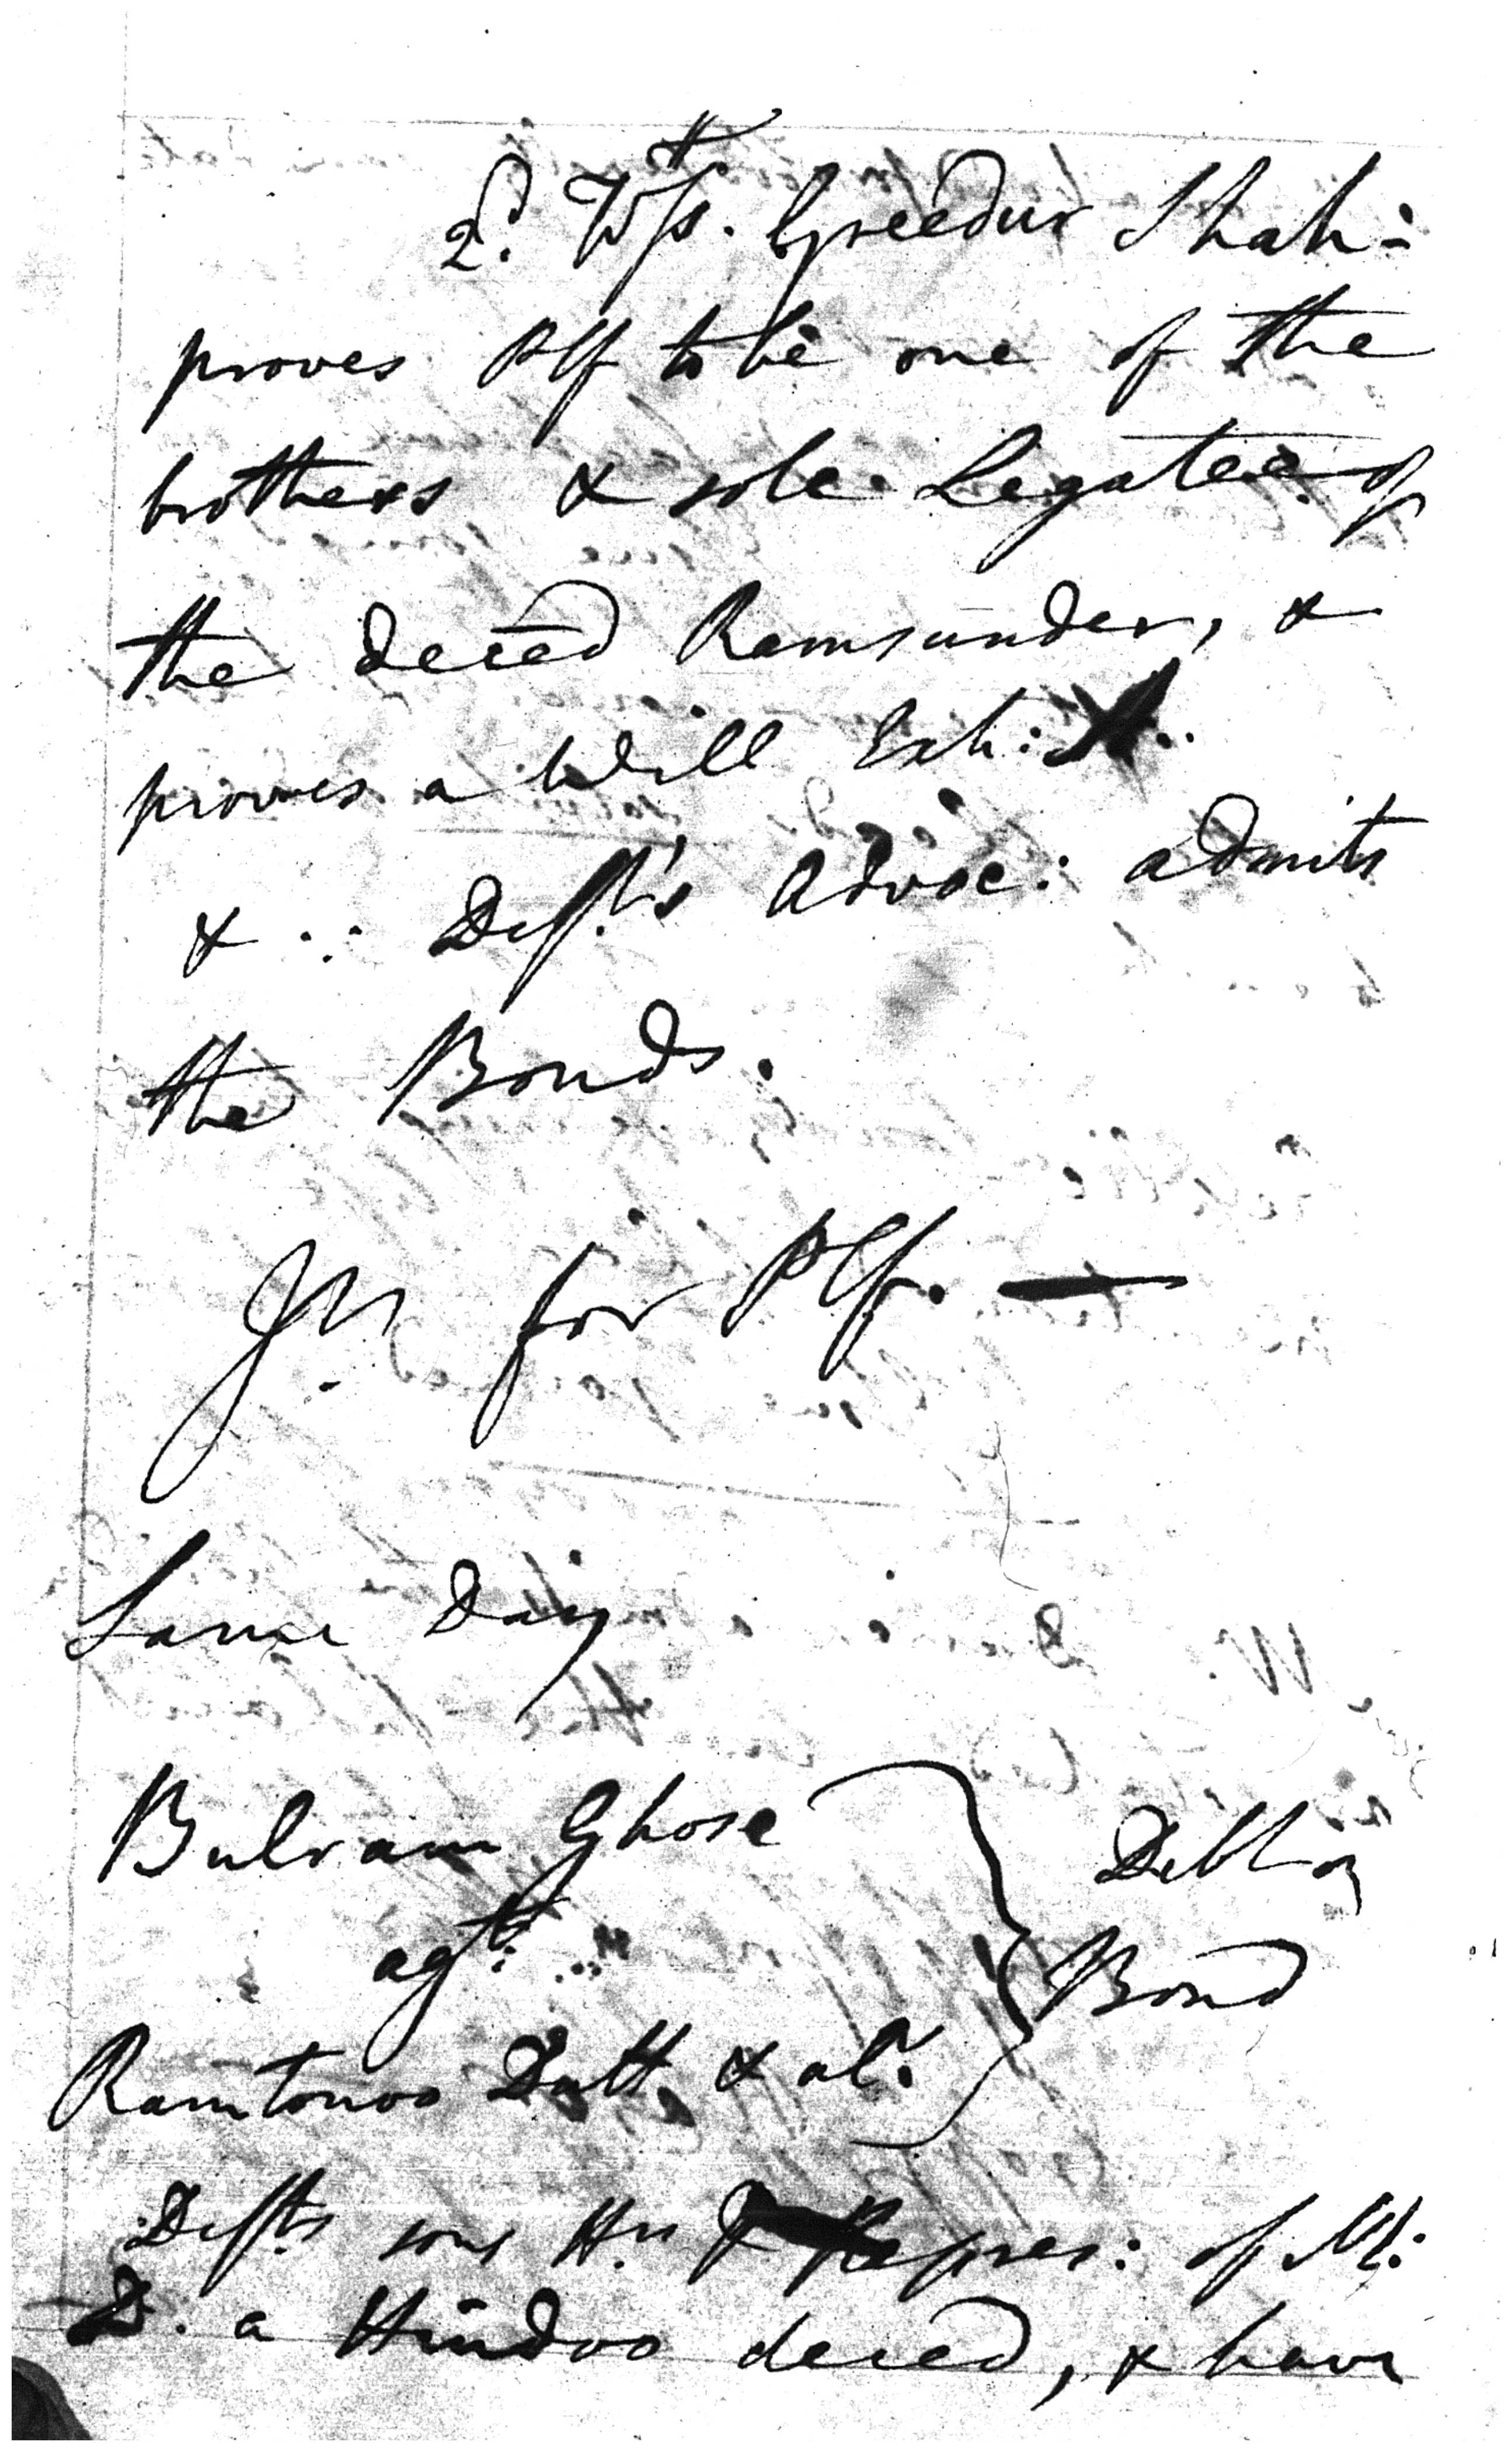 2d. Wss. Greedur Shah:
proves Plf to be one of the
brothers & sole Legatee of
the deced Ramsunder, &
proves a Will Exh:
& ∴ Deft's Advoc: admits
the Bonds.
Jt. for Plf. —
Same Day
Bulram Ghose
agt.
Ramtonoo Dutt & al.
Debt on
Bond
Defts sons Hn & Repres: of M:
D. a Hindoo deced, & have